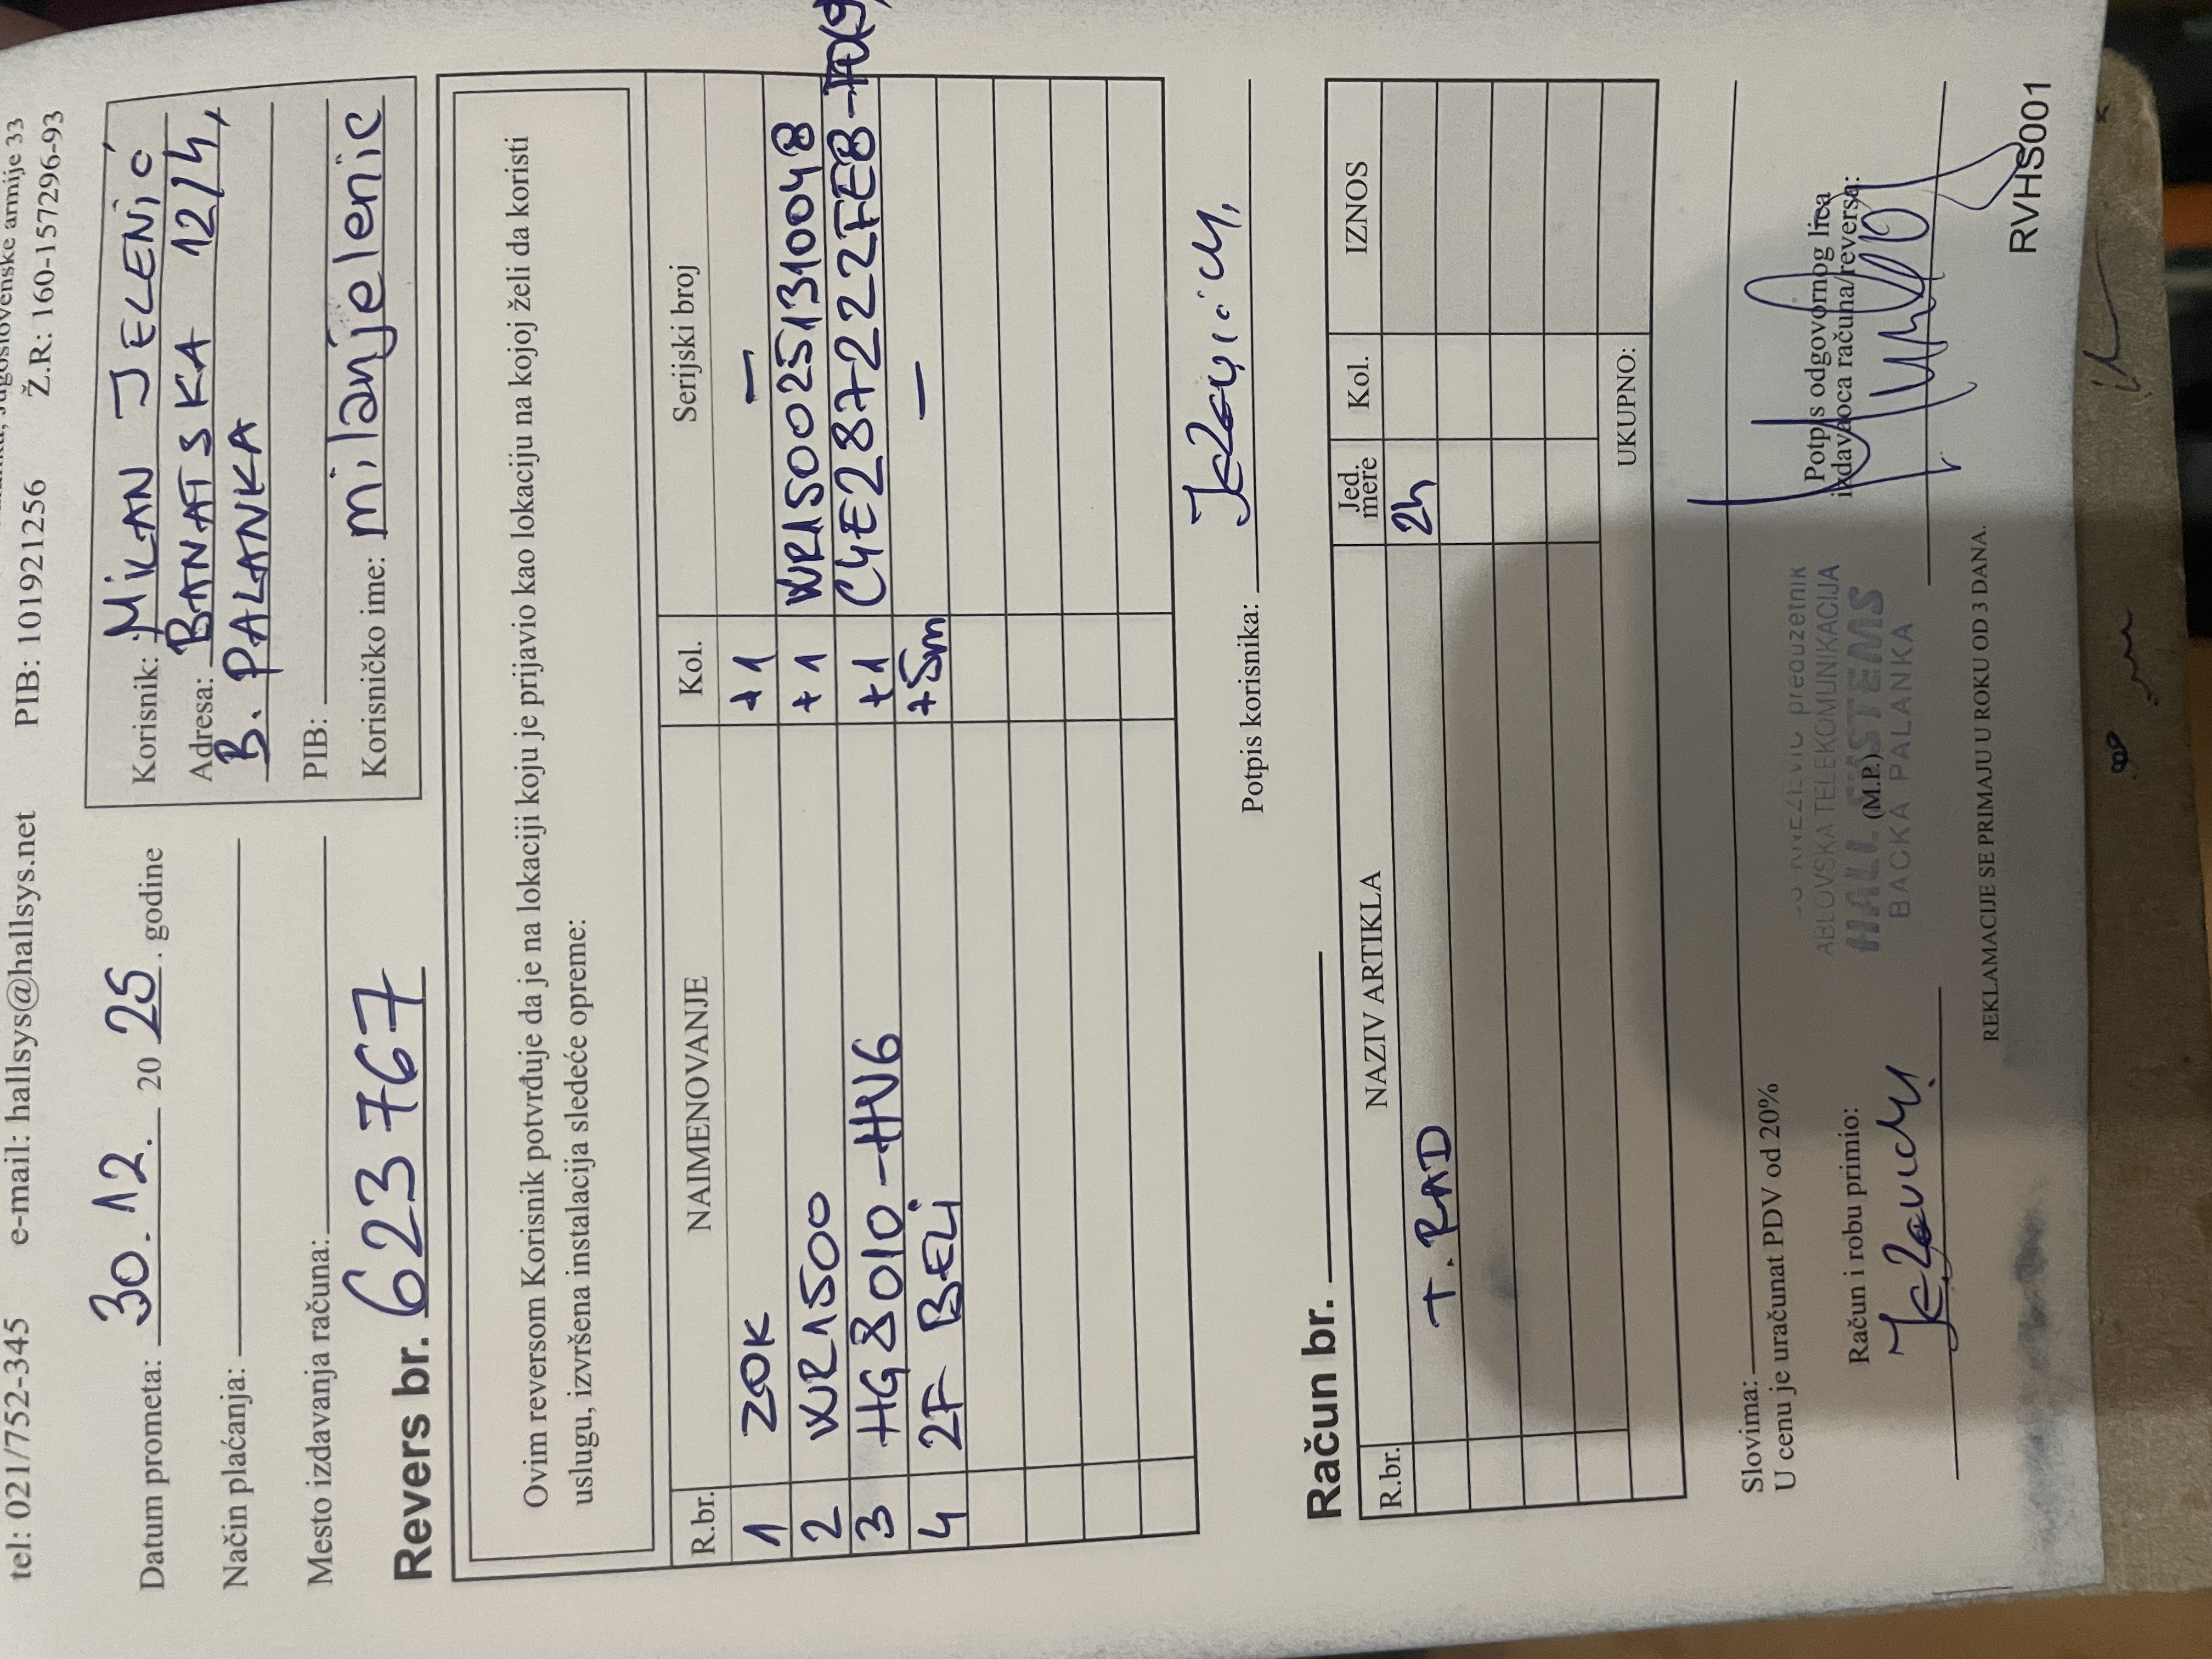 Jugoslovenske armije 33
tel: 021/752-345 e-mail: hallsys@hallsys.net PIB: 101921256 Ž.R: 160-157296-93
Datum prometa: 30.12. 20 25. godine
Način plaćanja:
Mesto izdavanja računa:
Korisnik: MILAN JELENIĆ
Adresa: BANATSKA 12/4,
B. PALANKA
PIB:
Korisničko ime: milanjelenic
Revers br. 623767
Ovim reversom Korisnik potvrđuje da je na lokaciji koju je prijavio kao lokaciju na kojoj želi da koristi
uslugu, izvršena instalacija sledeće opreme:
R.br. NAIMENOVANJE Kol. Serijski broj
1 ZOK +1 —
2 WR1500 +1 WR1500251310048
3 HG8010-HV6 +1 C4E2872222FEB
4 2F BELI +5m —
Potpis korisnika:
Račun br.
R.br. NAZIV ARTIKLA Jed. mere Kol. IZNOS
T. RAD 2h
UKUPNO:
Slovima:
U cenu je uračunat PDV od 20%
Račun i robu primio:
preduzetnik
KABLOVSKA TELEKOMUNIKACIJA
HALL SYSTEMS
BACKA PALANKA
(M.P.)
Potpis odgovornog lica
izdavaoca računa/reversa:
REKLAMACIJE SE PRIMAJU U ROKU OD 3 DANA.
RVHS001